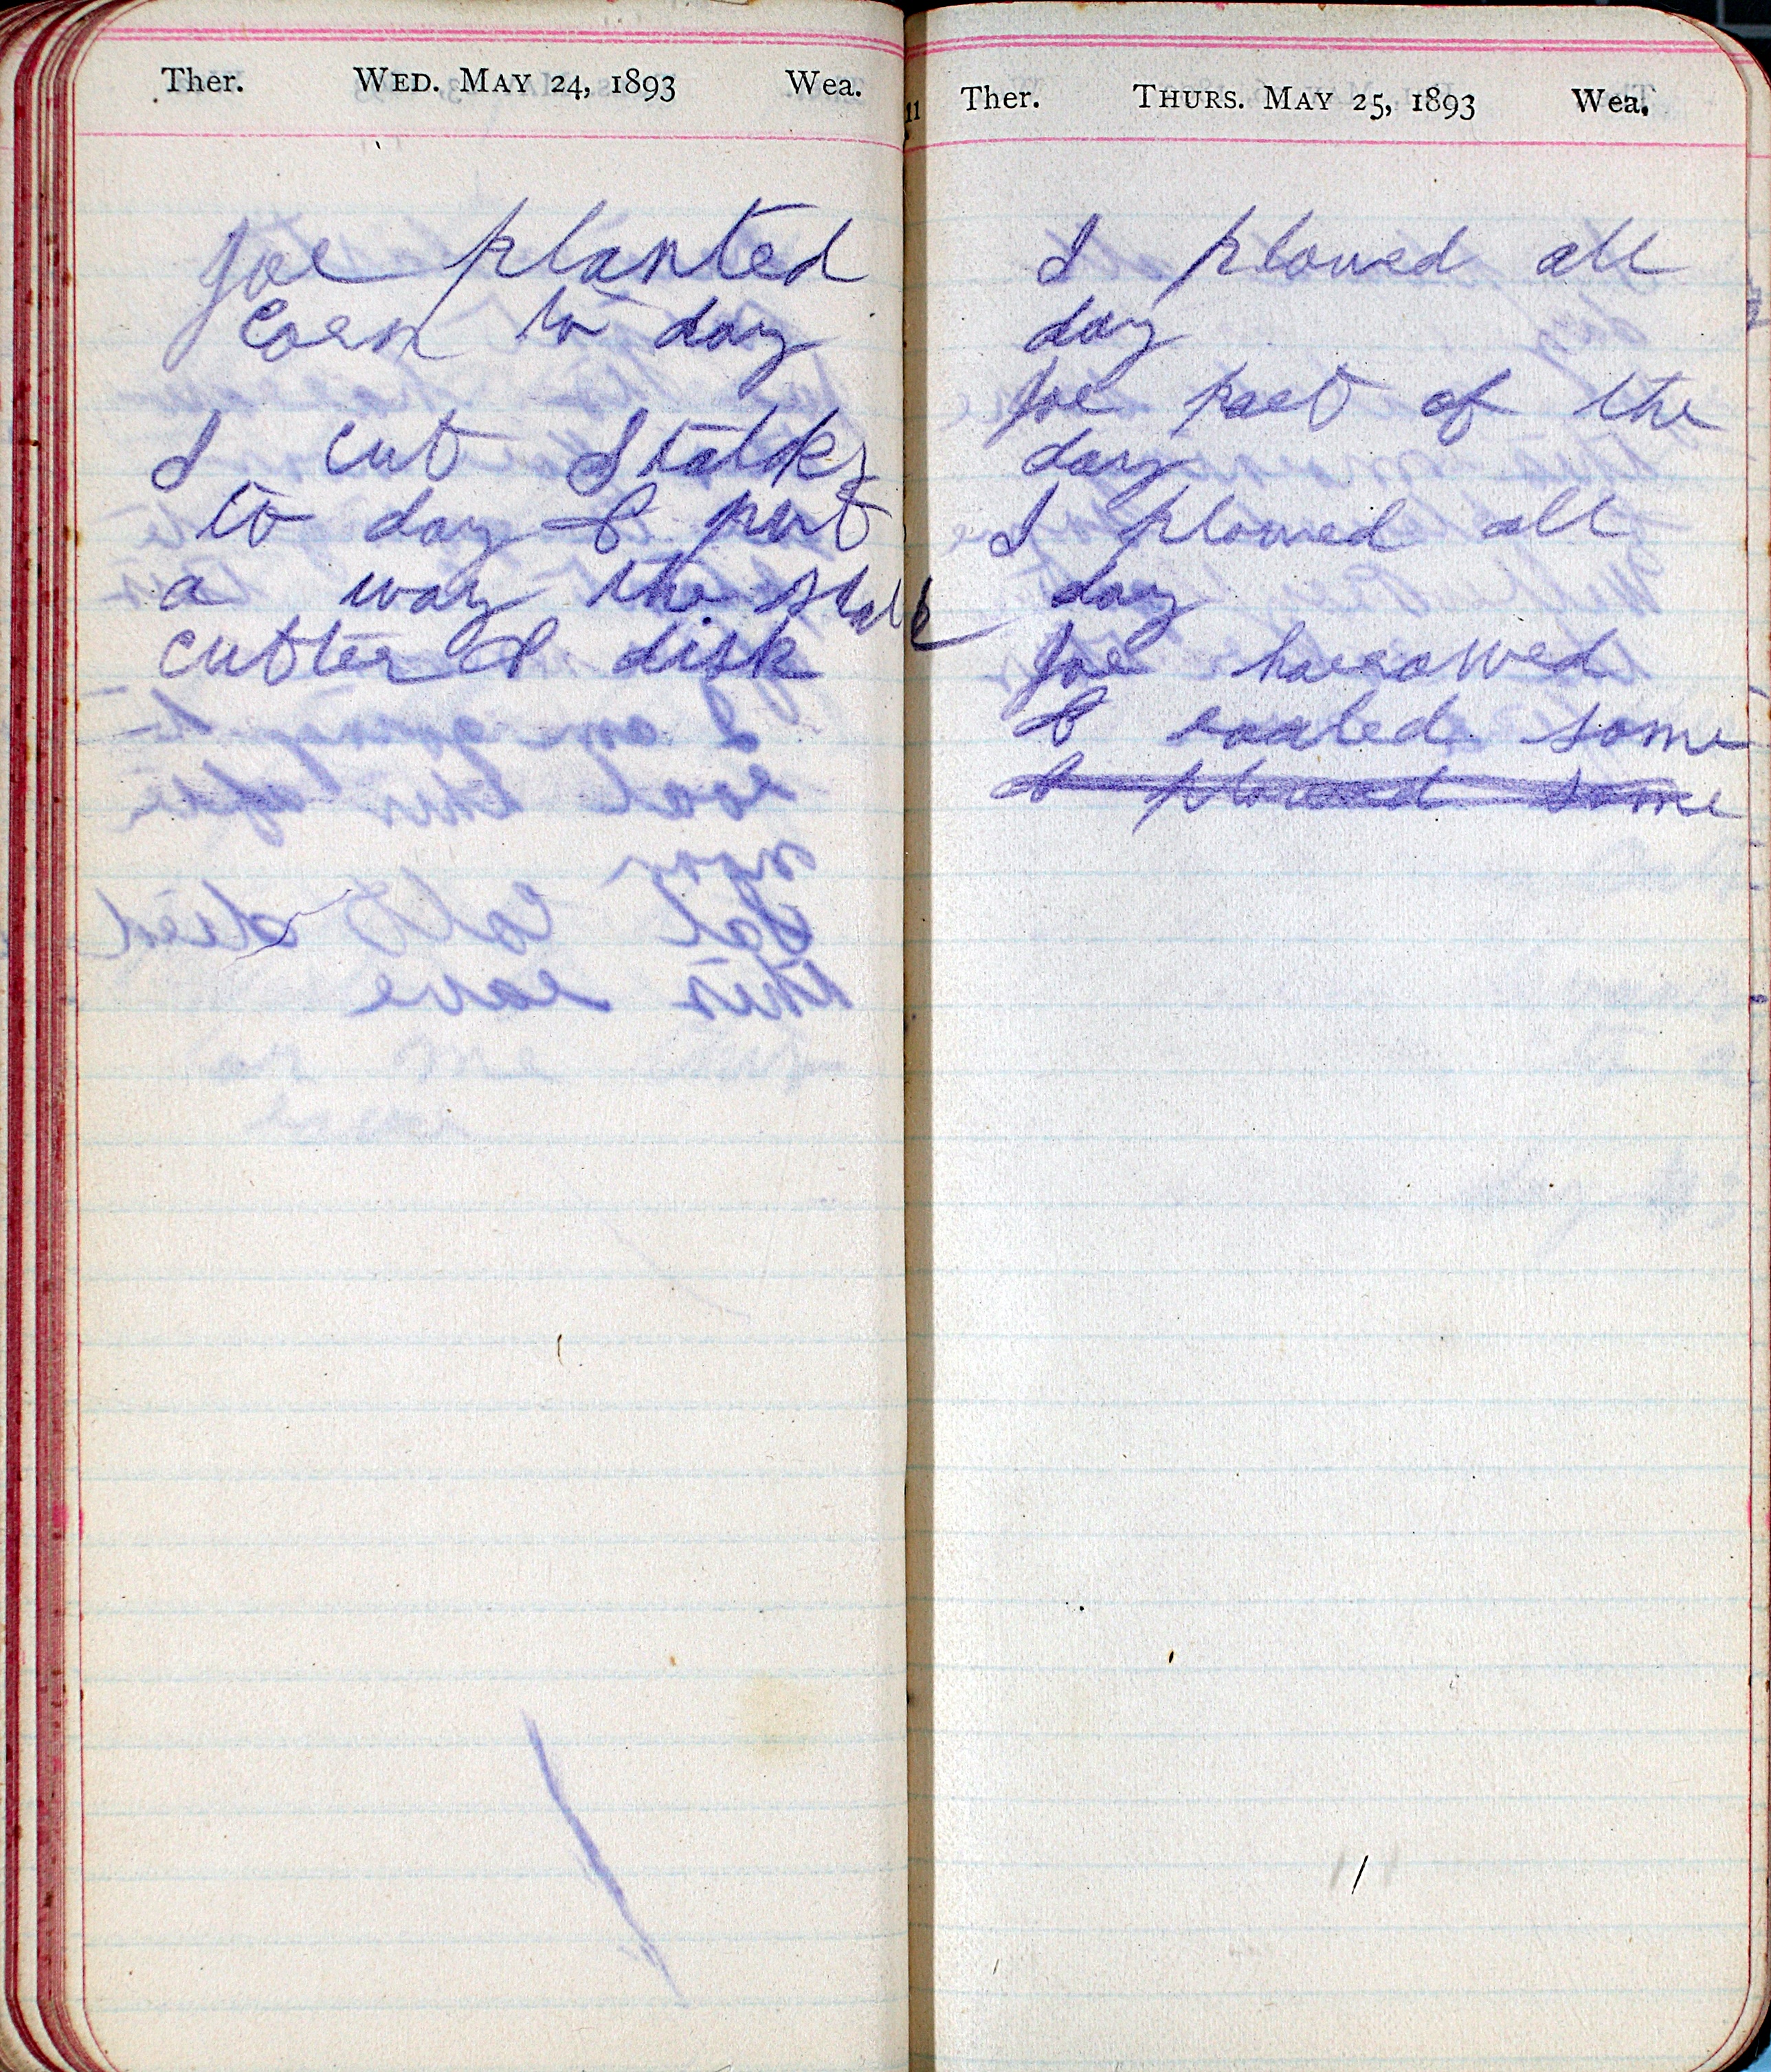 Ther. WED. MAY 24, 1893 Wea.
Joe planted
Corn to day
I cut Stalks
to day & put
a way the stalk
cutter & disk
11 Ther. THURS. MAY 25, 1893 Wea.
I plowed all
day
Joe part of the
day
I plowed all
day
Joe harrowed
& roaled some
& plowed some